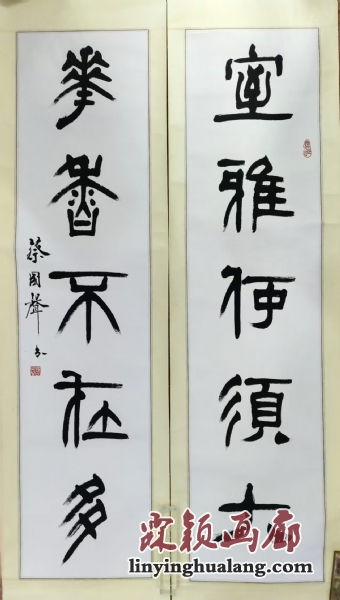 室雅何須大
華香不在多
蔡國聲書
琳颖画廊
linyinghualang.com